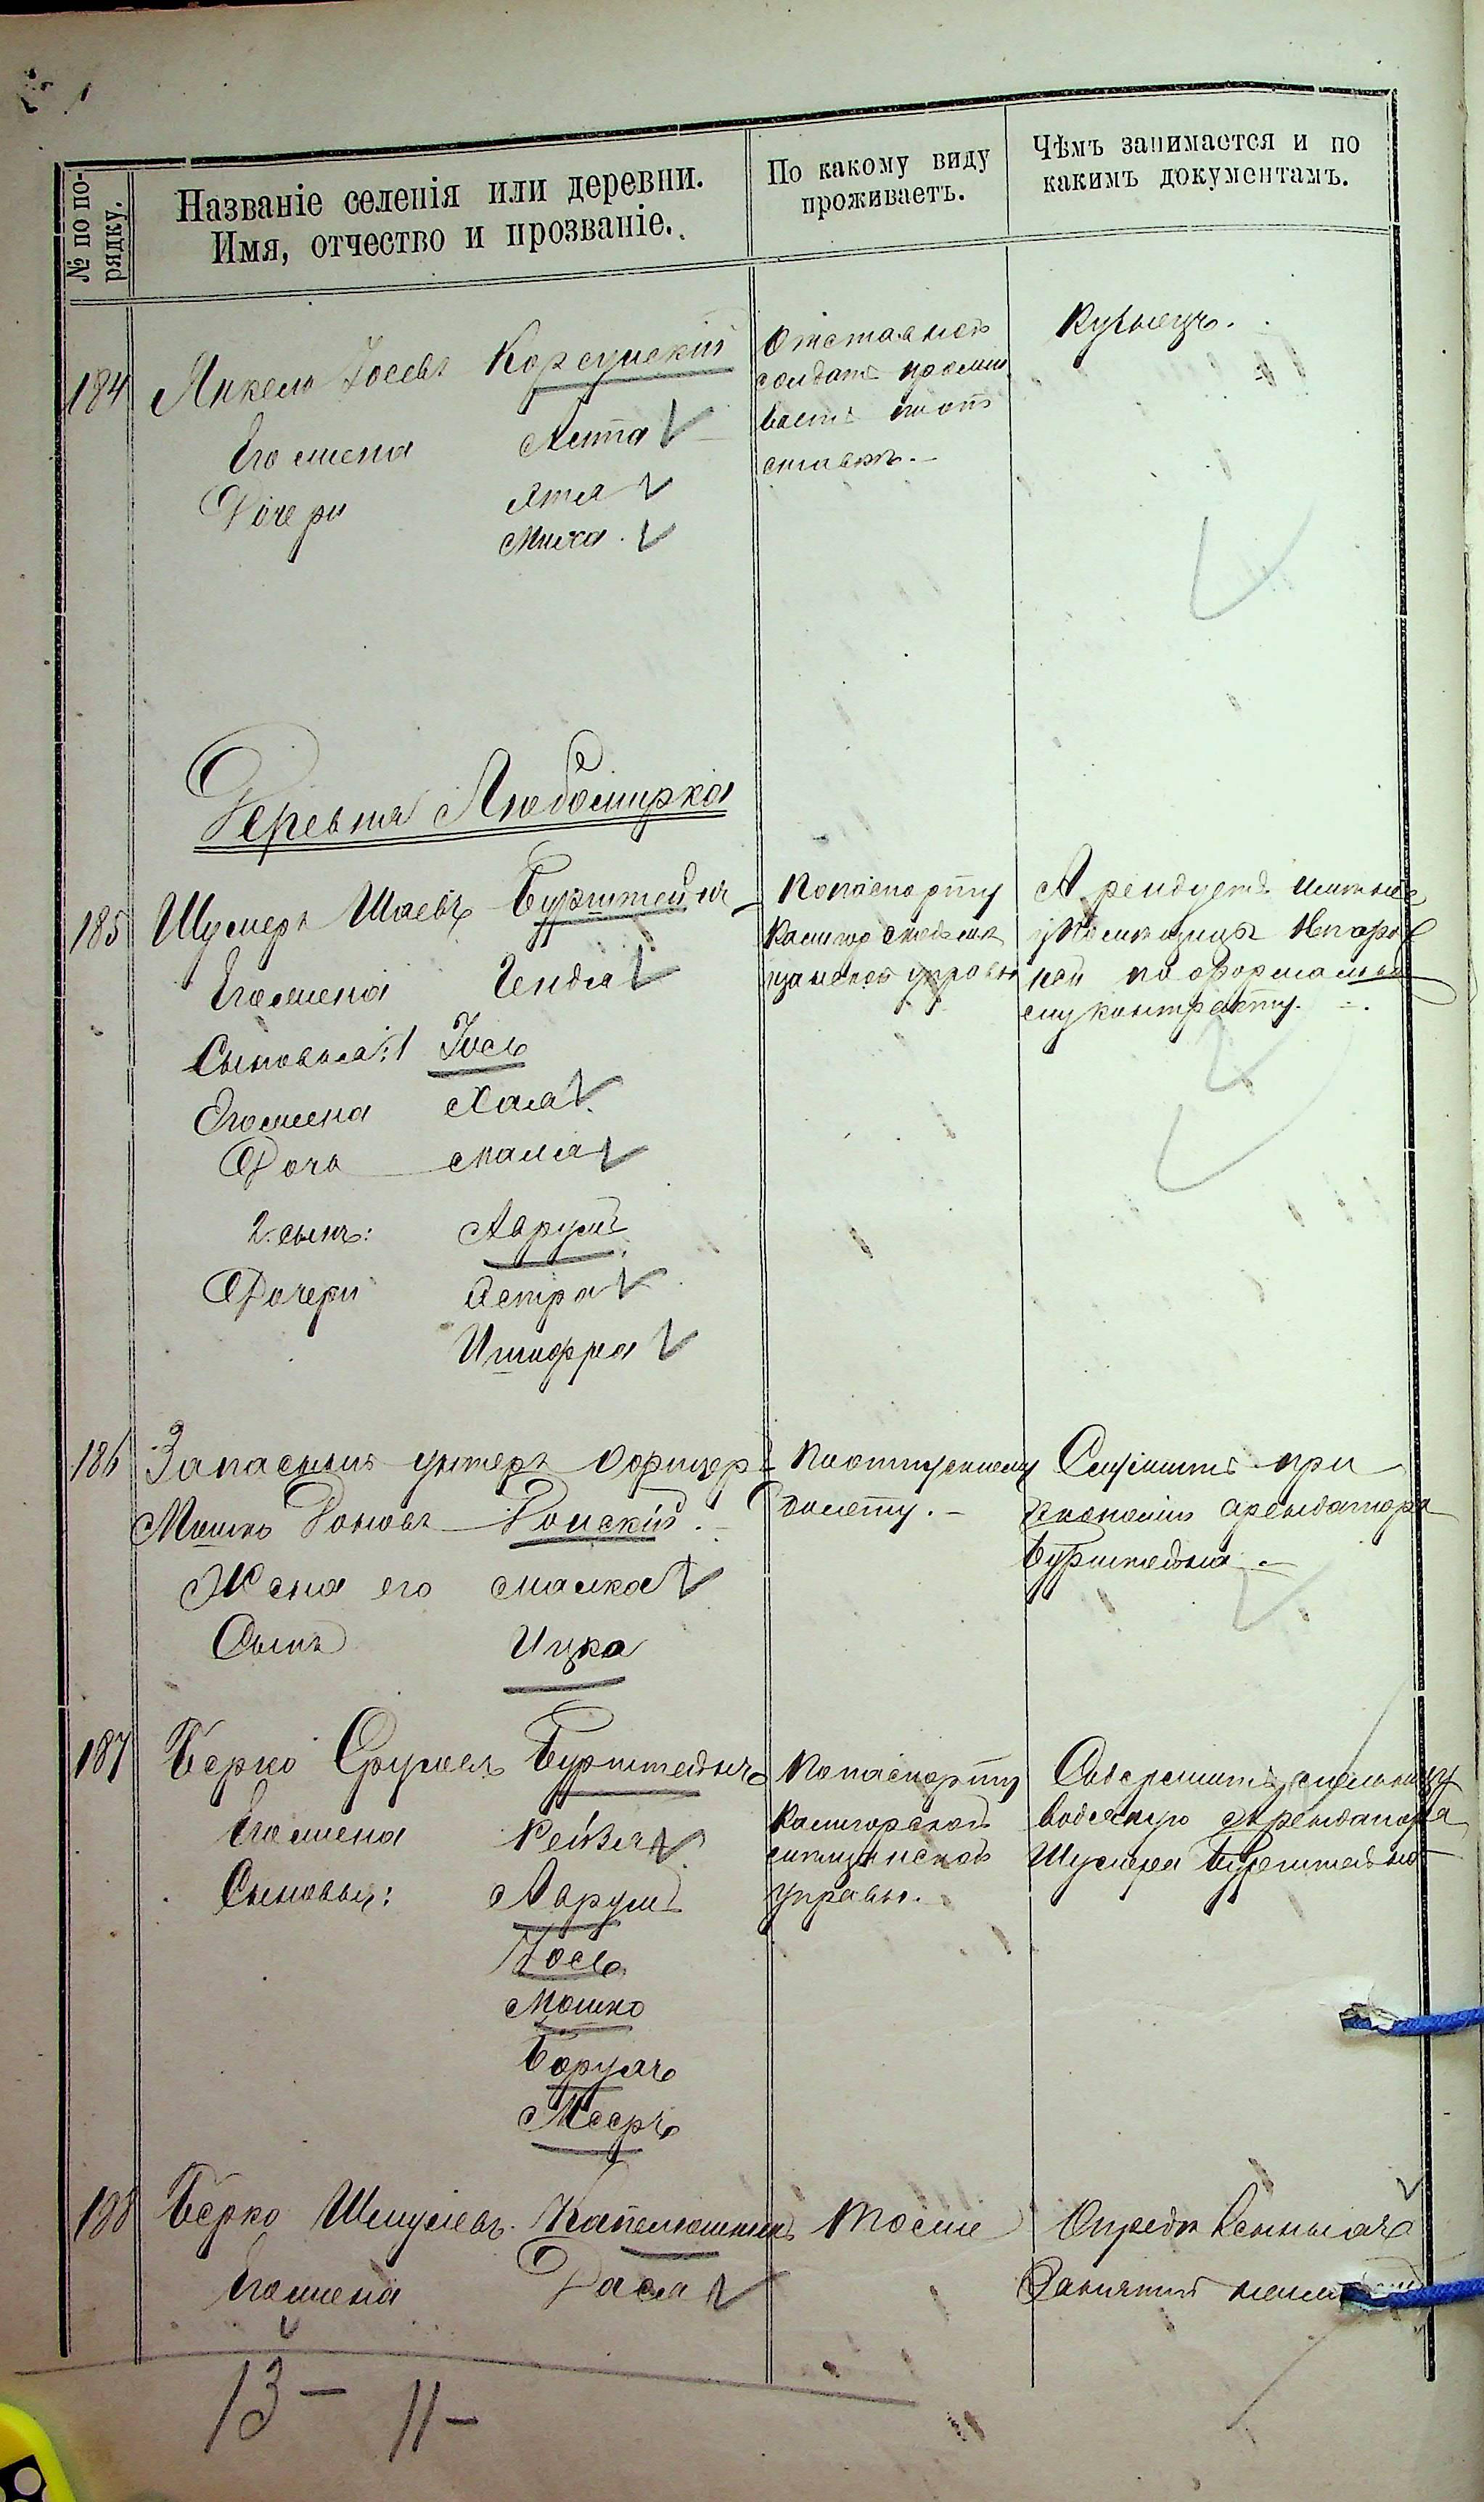 № по по-
рядку.
Названіе селенія или деревни.
Имя, отчество и прозваніе.
По какому виду
проживаетъ.
Чѣмъ занимается и по
какимъ документамъ.
184
Янкель Іосевъ Корсунскій
Его жена
Дочери
Отставной
солдатъ прожи
ваетъ
Кузнецъ.
Деревня Любомирка
185
Шумеръ Шаевъ Бурштейнъ
Его жена Гендля
Сыновья: 1 Іось
Его жена Хая
Дочь Маля
2. сынъ: Аврумъ
Дочери Естра
По паспорту
щанской управы
Арендуетъ имѣніе
у помѣщицы
по формальн
му контракту.
186
Запасный унтеръ офицер
Мошко Донскій.
Жена его Малка
Сынъ Ицко
По отпускному
билету.
Служитъ при
экономіи арендатора
Бурштейна.
187
Берко Срулевъ Бурштейнъ
Его жена Рейзя
Сыновья: Аврумъ
Іось
Мошко
Борухъ
Мееръ
По паспорту
мѣщанской
управы.
Содержитъ мельницу
водяную арендатора
Шумера Бурштейна
188
Берко Шмулевъ Капелюшникъ
Его жена Дася
Тоже
Опредѣленныхъ
Занятій
13 — 11 —